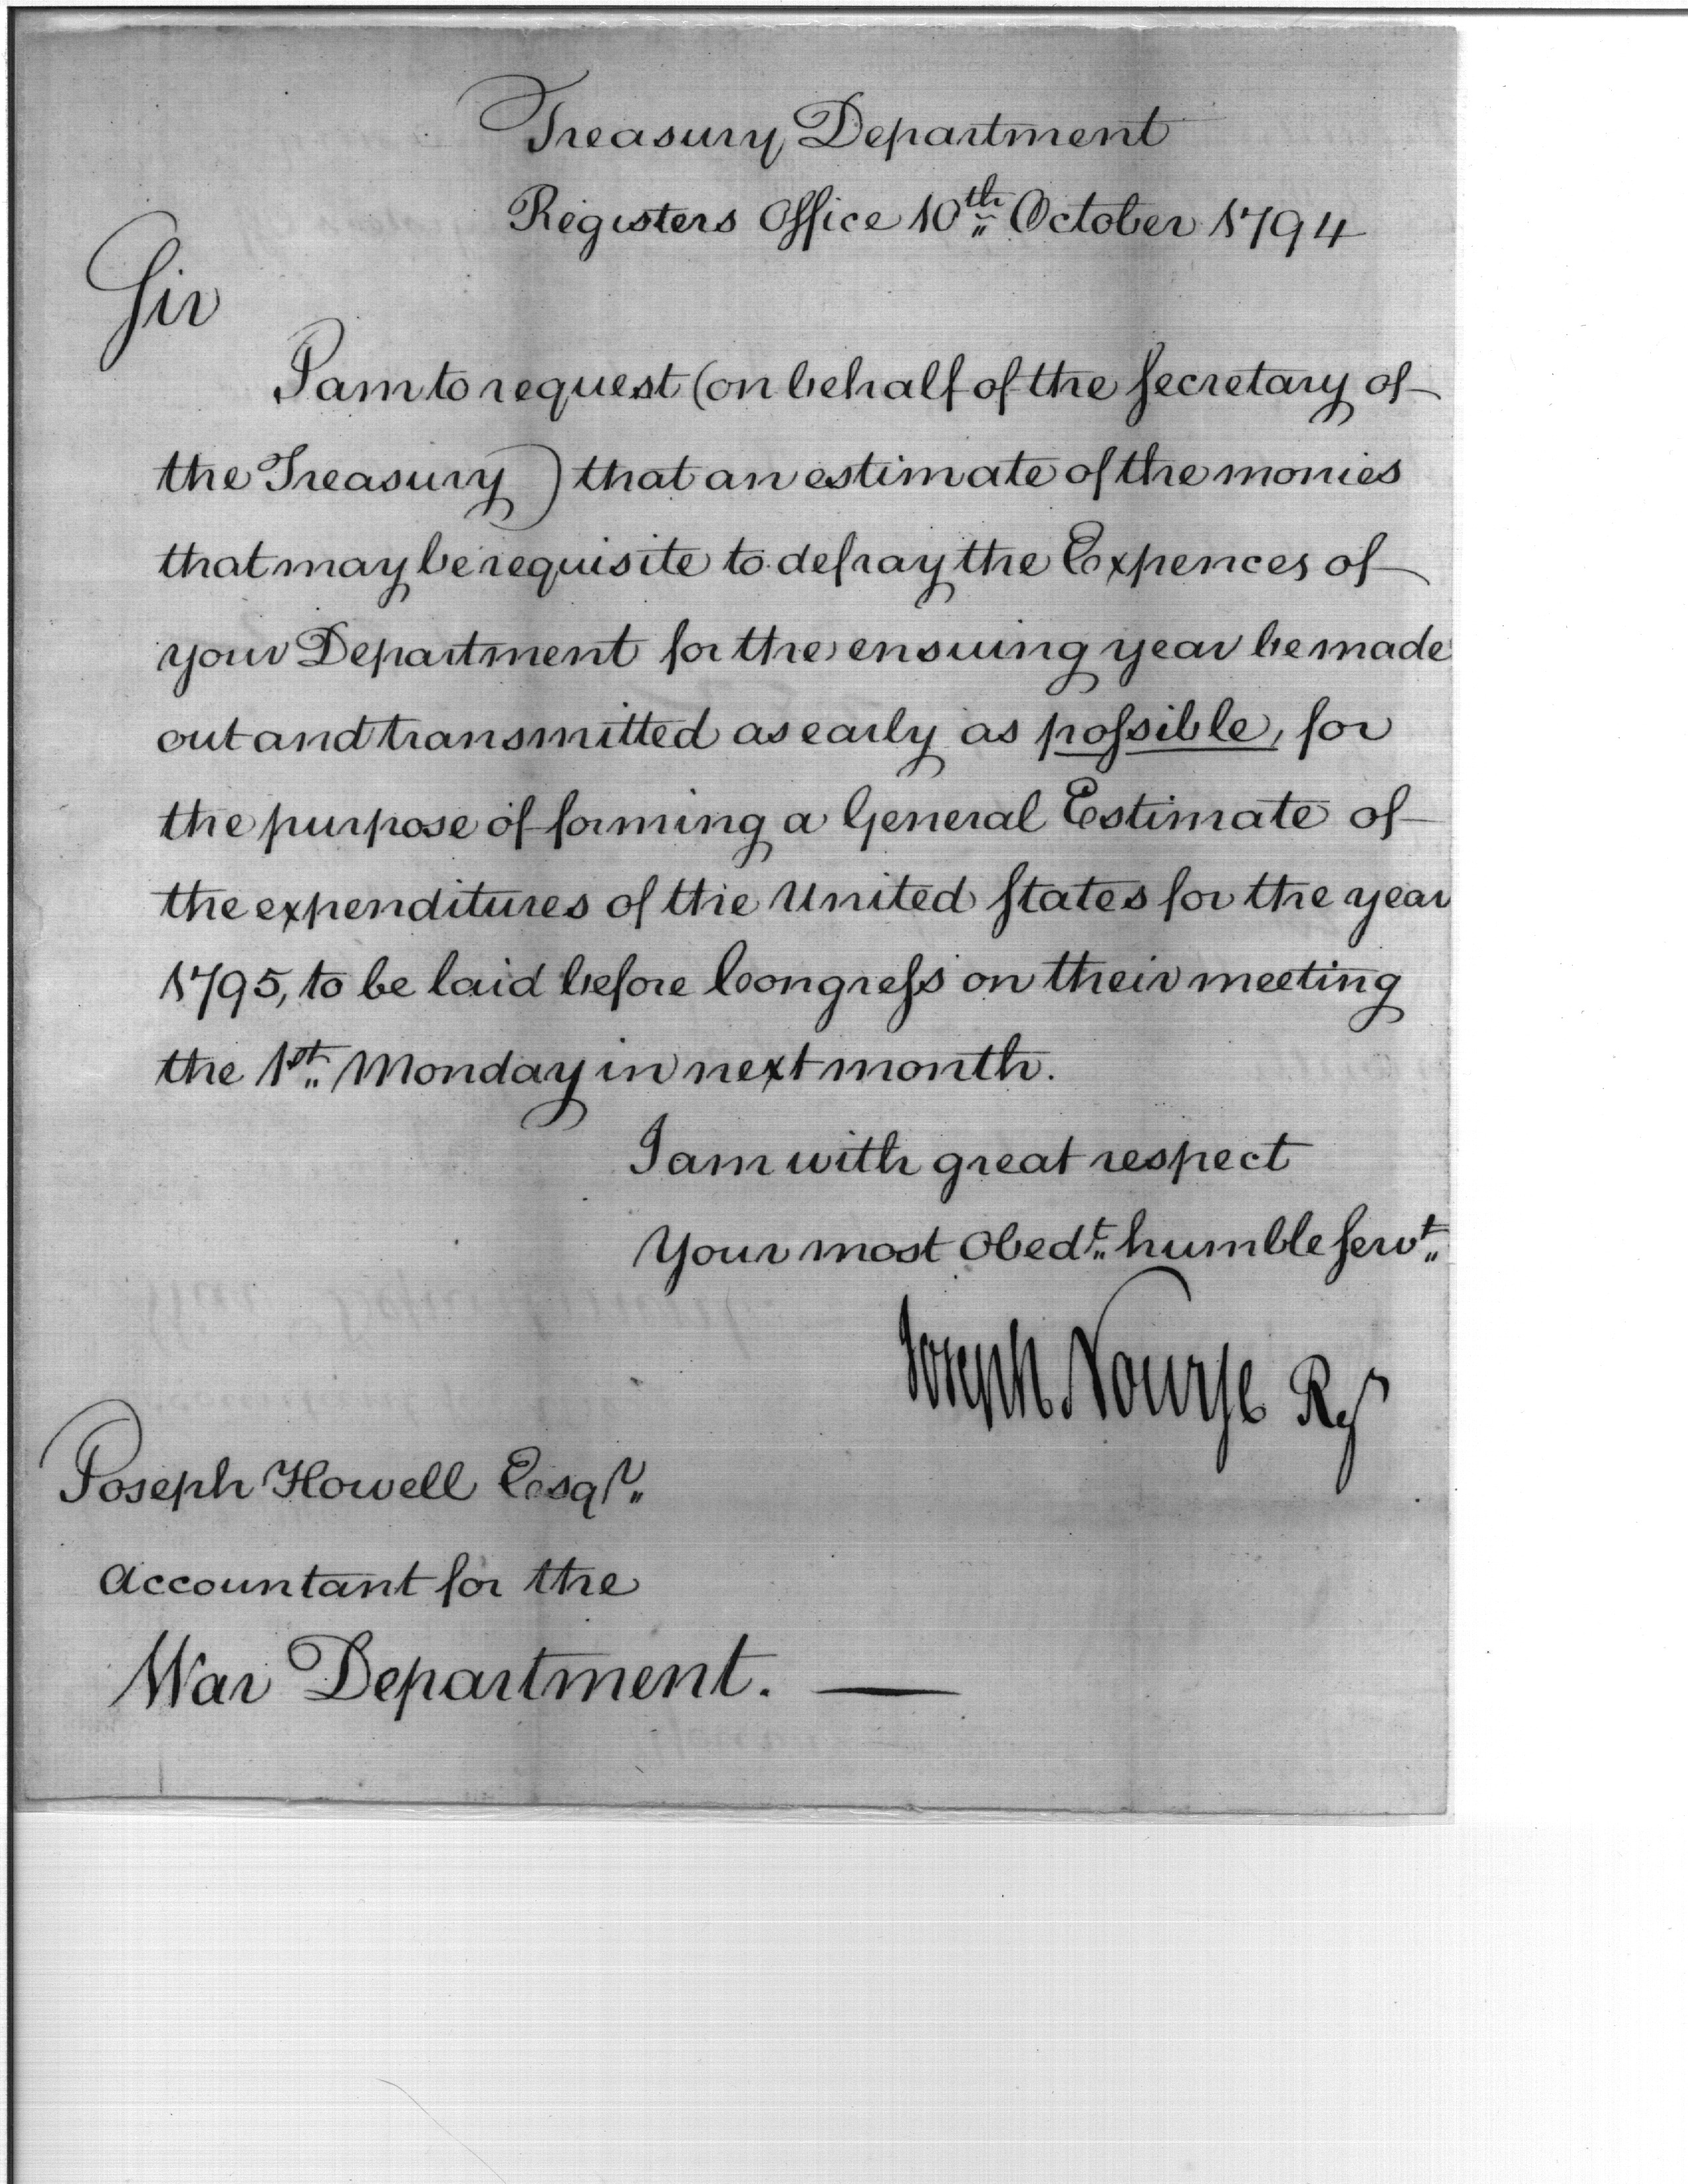 Treasury Department
Registers Office 10th October 1794
Sir
I am to request (on behalf of the Secretary of
the Treasury) that an estimate of the monies
that may be requisite to defray the Expences of
your Department for the ensuing year be made
out and transmitted as early as poſsible, for
the purpose of forming a General Estimate of
the expenditures of the United States for the year
1795, to be laid before Congreſs on their meeting
the 1st Monday in next month.
I am with great respect
Your most Obedt humble Servt
Joseph Nourse Regr
Joseph Howell Esqr
Accountant for the
War Department.